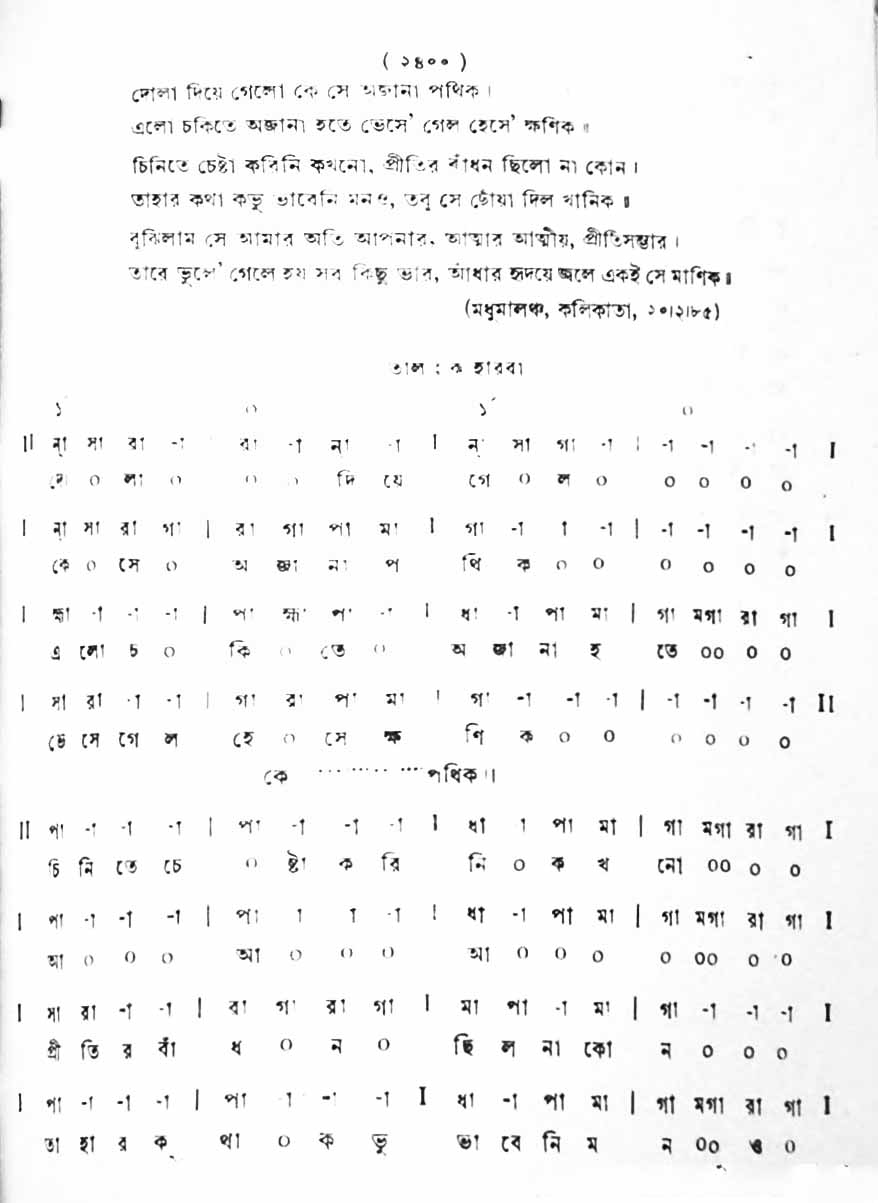 ( ২৪০০ )
দোলা দিয়ে গেলো কে সে অজানা পথিক ।
এলো চকিতে অজানা হতে ভেসে' গেল হেসে' ক্ষণিক ॥
চিনিতে চেষ্টা করিনি কখনো, প্রীতির বাঁধন ছিলো না কোন ।
তাহার কথা কভু ভাবেনি মনও, তবু সে ছোঁয়া দিল খানিক ॥
বুঝিলাম সে আমার অতি আপনার, আত্মার আত্মীয়, প্রীতিসম্ভার ।
তারে ভুলে' গেলে হয় সব কিছু ভার, আঁধার হৃদয়ে জ্বলে একই সে মাণিক ॥
(মধুমালঞ্চ, কলিকাতা, ২০।২।৮৫)
তাল : কাহারবা
১´ ০ ১´ ০
II ন্া সা রা -া | রা -া ন্া -া I ন্া সা গা -া | -া -া -া -া I
দো ০ লা ০ ০ ০ দি য়ে গে ০ ল ০ ০ ০ ০ ০
I ন্া সা রা গা | রা গা পা মা I গা -া -া -া | -া -া -া -া I
কে ০ সে ০ অ জা না প থি ক ০ ০ ০ ০ ০ ০
I হ্মা -া -া -া | পা হ্মা পা -া I ধা -া পা মা | গা মগা রা গা I
এ লো চ ০ কি ০ তে ০ অ জা না হ তে ০০ ০ ০
I সা রা -া -া | গা রা পা মা I গা -া -া -া | -া -া -া -া II
ভে সে গে ল হে ০ সে ক্ষ ণি ক ০ ০ ০ ০ ০ ০
কে ............ পথিক ॥
II পা -া -া -া | পা -া -া -া I ধা -া পা মা | গা মগা রা গা I
চি নি তে চে ০ ষ্টা ক রি নি ০ ক খ নো ০০ ০ ০
I পা -া -া -া | পা -া -া -া I ধা -া পা মা | গা মগা রা গা I
আ ০ ০ ০ আ ০ ০ ০ আ ০ ০ ০ ০ ০০ ০ ০
I সা রা -া -া | রা গা রা গা I মা পা -া মা | গা -া -া -া I
প্রী তি র বাঁ ধ ০ ন ০ ছি ল না কো ন ০ ০ ০
I পা -া -া -া | পা -া -া -া I ধা -া পা মা | গা মগা রা গা I
তা হা র ক থা ০ ক ভু ভা বে নি ম ন ০০ ও ০